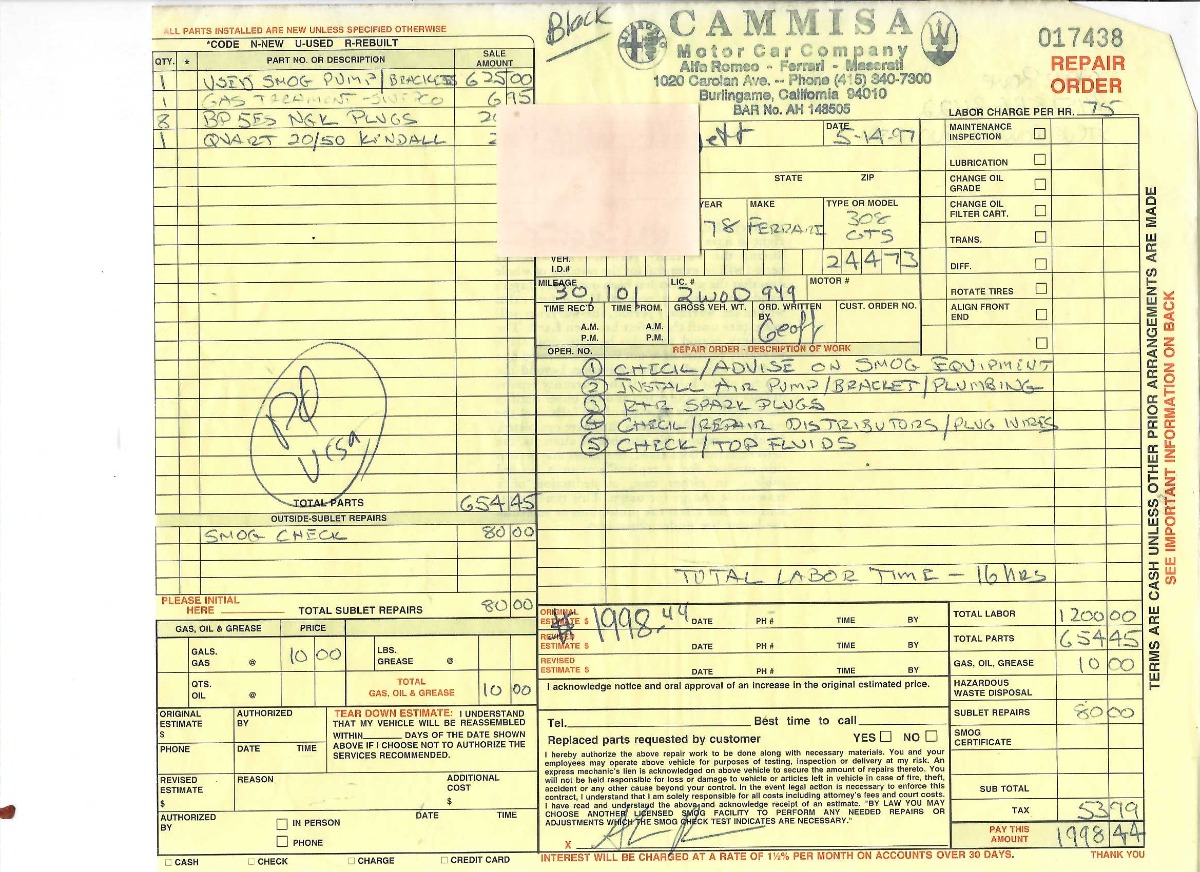 ALL PARTS INSTALLED ARE NEW UNLESS SPECIFIED OTHERWISE
*CODE N-NEW U-USED R-REBUILT
QTY. * PART NO. OR DESCRIPTION SALE AMOUNT
1 USED SMOG PUMP/BRACKETS 625 00
1 GAS TREATMENT - 6 95
8 BP5ES NGK PLUGS
1 QUART 20/50 KENDALL
Pd VISA
TOTAL PARTS 654 45
OUTSIDE-SUBLET REPAIRS
SMOG CHECK 80 00
PLEASE INITIAL HERE TOTAL SUBLET REPAIRS 80 00
GAS, OIL & GREASE PRICE
GALS. GAS @ 10 00 LBS. GREASE @
QTS. OIL @ TOTAL GAS, OIL & GREASE 10 00
ORIGINAL ESTIMATE $ AUTHORIZED BY
PHONE DATE TIME
TEAR DOWN ESTIMATE: I UNDERSTAND
THAT MY VEHICLE WILL BE REASSEMBLED
WITHIN DAYS OF THE DATE SHOWN
ABOVE IF I CHOOSE NOT TO AUTHORIZE THE
SERVICES RECOMMENDED.
REVISED ESTIMATE $ REASON ADDITIONAL COST $
AUTHORIZED BY DATE TIME
IN PERSON
PHONE
CASH CHECK CHARGE CREDIT CARD
Black
ALFA ROMEO
CAMMISA
Motor Car Company
Alfa Romeo - Ferrari - Maserati
1020 Carolan Ave. -- Phone (415) 340-7300
Burlingame, California 94010
BAR No. AH 148505
017438
REPAIR
ORDER
LABOR CHARGE PER HR. 75
DATE 5-14-97
STATE ZIP
YEAR 78 MAKE FERRARI TYPE OR MODEL 308 GTS
VEH. I.D.# 24473
MILEAGE 30,101 LIC. # 2WOD 949 MOTOR #
TIME REC'D A.M. P.M. TIME PROM. A.M. P.M. GROSS VEH. WT. ORD. WRITTEN BY Geoff CUST. ORDER NO.
MAINTENANCE INSPECTION
LUBRICATION
CHANGE OIL GRADE
CHANGE OIL FILTER CART.
TRANS.
DIFF.
ROTATE TIRES
ALIGN FRONT END
OPER. NO. REPAIR ORDER - DESCRIPTION OF WORK
① CHECK/ADVISE ON SMOG EQUIPMENT
② INSTALL AIR PUMP/BRACKET/PLUMBING
③ R+R SPARK PLUGS
④ CHECK/REPAIR DISTRIBUTORS/PLUG WIRES
⑤ CHECK/TOP FLUIDS
TOTAL LABOR TIME - 16 HRS
ORIGINAL ESTIMATE $ 1998.44 DATE PH # TIME BY
REVISED ESTIMATE $ DATE PH # TIME BY
REVISED ESTIMATE $ DATE PH # TIME BY
I acknowledge notice and oral approval of an increase in the original estimated price.
Tel. Best time to call
Replaced parts requested by customer YES NO
I hereby authorize the above repair work to be done along with necessary materials. You and your
employees may operate above vehicle for purposes of testing, inspection or delivery at my risk. An
express mechanic's lien is acknowledged on above vehicle to secure the amount of repairs thereto. You
will not be held responsible for loss or damage to vehicle or articles left in vehicle in case of fire, theft,
accident or any other cause beyond your control. In the event legal action is necessary to enforce this
contract, I understand that I am solely responsible for all costs including attorney's fees and court costs.
I have read and understand the above and acknowledge receipt of an estimate. "BY LAW YOU MAY
CHOOSE ANOTHER LICENSED SMOG FACILITY TO PERFORM ANY NEEDED REPAIRS OR
ADJUSTMENTS WHICH THE SMOG CHECK TEST INDICATES ARE NECESSARY."
X
INTEREST WILL BE CHARGED AT A RATE OF 1½% PER MONTH ON ACCOUNTS OVER 30 DAYS.
TOTAL LABOR 1200 00
TOTAL PARTS 654 45
GAS, OIL, GREASE 10 00
HAZARDOUS WASTE DISPOSAL
SUBLET REPAIRS 80 00
SMOG CERTIFICATE
SUB TOTAL
TAX 53 99
PAY THIS AMOUNT 1998 44
THANK YOU
TERMS ARE CASH UNLESS OTHER PRIOR ARRANGEMENTS ARE MADE
SEE IMPORTANT INFORMATION ON BACK